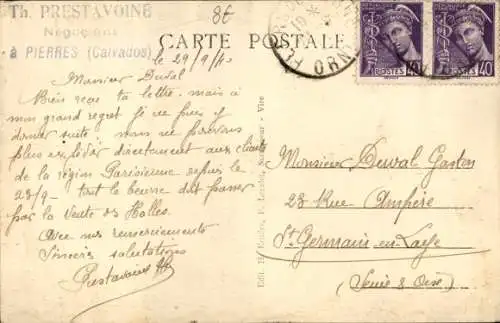 Th. PRESTAVOINE
Négociant
à PIERRES (Calvados)
8€
CARTE POSTALE
le 29/9/40
Monsieur Duval
Bien reçu ta lettre, mais à
mon grand regret je ne puis y
donner suite, nous ne pouvons
plus expédier directement aux clients
de la région Parisienne depuis le
23/9 - tout le beurre doit passer
par la Vente des Halles.
Avec nos remerciements
Sincères salutations
Prestavoine Th
Vire
ORNE
POSTES
40
POSTES
40
Monsieur Duval Gaston
23 Rue Ampère
St Germain-en-Laye
(Seine & Oise)